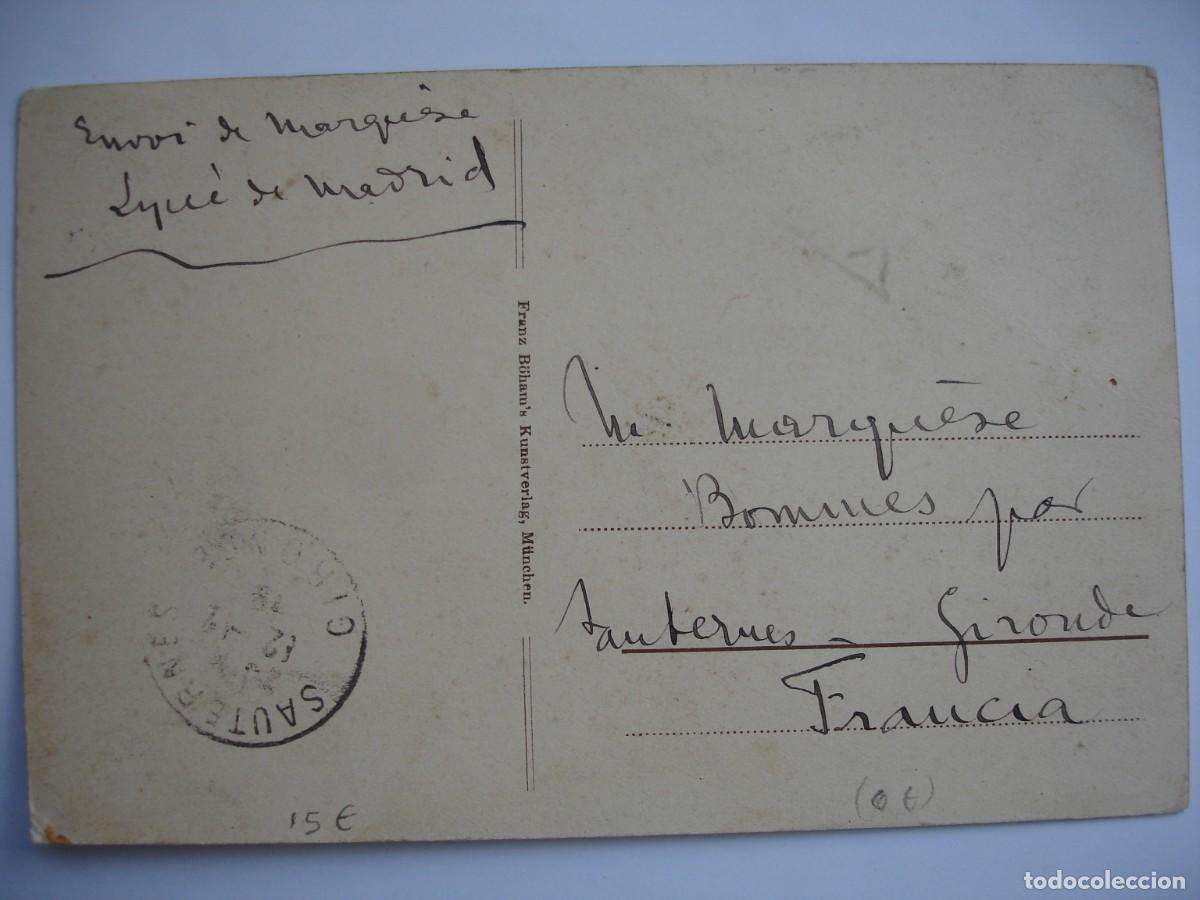 Envoi de Marquèse
Lycée de Madrid
Franz Böham's Kunstverlag, München.
M. Marquèse
Bommes par
Sauternes - Gironde
Francia
SAUTERNES
GIRONDE
15 €
todocoleccion